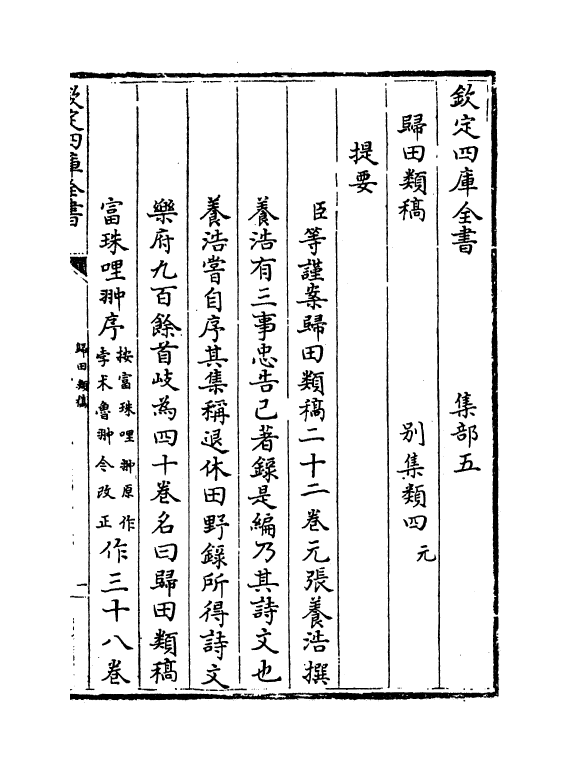 欽定四庫全書　集部五
歸田類稿　別集類四元
提要
臣等謹案歸田類稿二十二卷元張養浩撰
養浩有三事忠告已著錄是編乃其詩文也
養浩嘗自序其集稱退休田野錄所得詩文
樂府九百餘首岐為四十卷名曰歸田類稿
富珠哩翀序按富珠哩翀原作孛术魯翀今改正作三十八卷
欽定四庫全書
歸田類稿